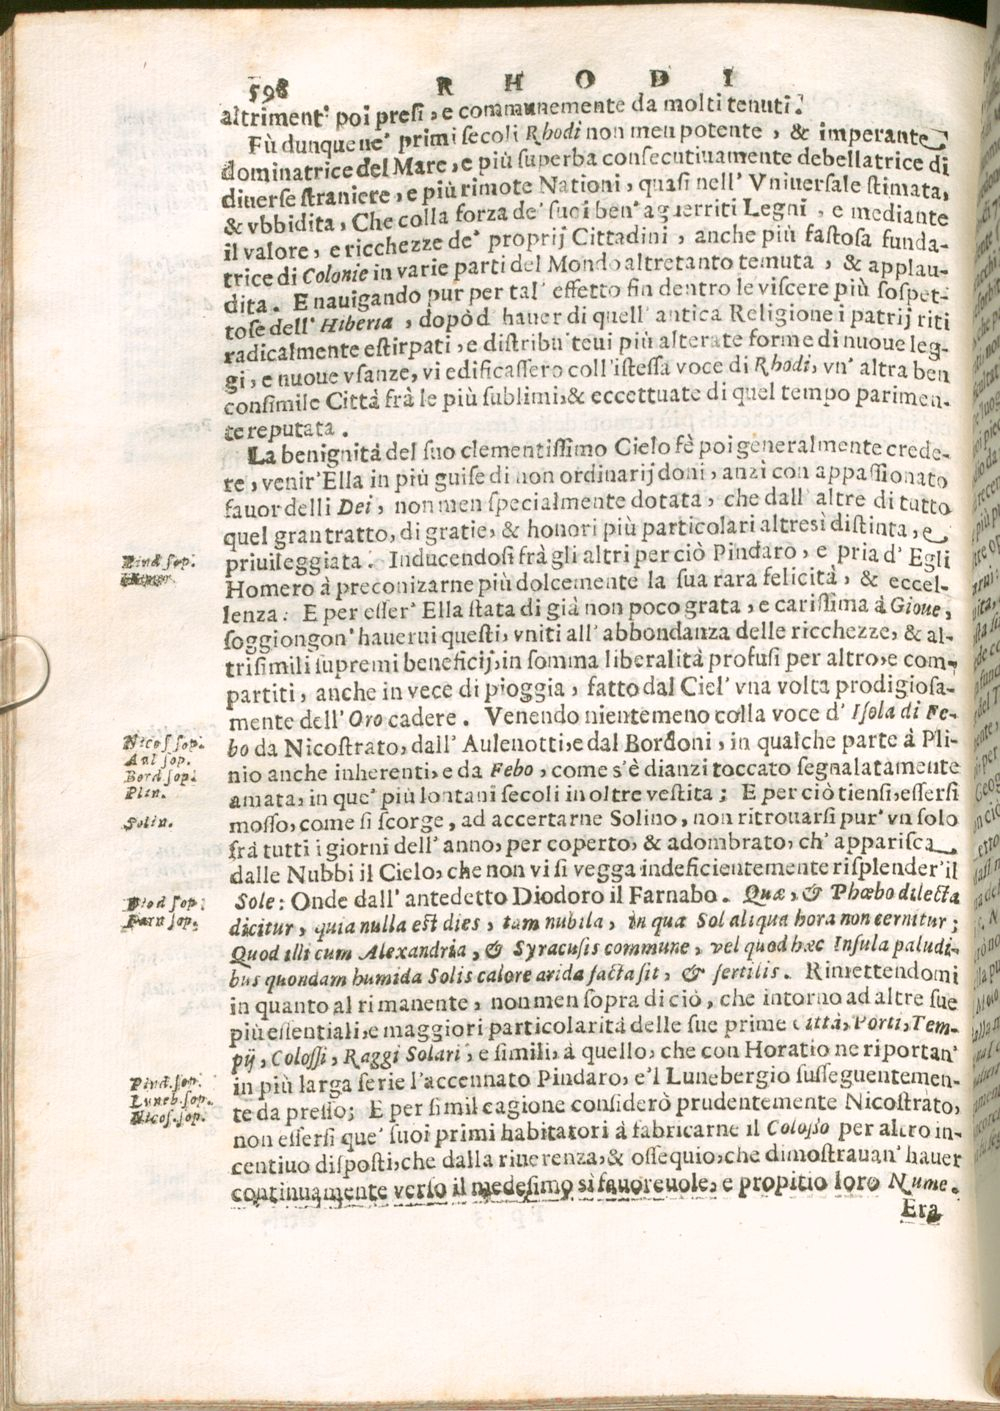 598 R H O D I
altriment' poi presi, e communemente da molti tenuti.
Fù dunque ne' primi secoli Rhodi non men potente, & imperante
dominatrice del Mare, e più superba consecutiuamente debellatrice di
diuerse straniere, e più rimote Nationi, quasi nell' Vniuersale stimata,
& vbbidita, Che colla forza de' suoi ben' aguerriti Legni, e mediante
il valore, e ricchezze de' proprij Cittadini, anche più fastosa funda-
trice di Colonie in varie parti del Mondo altretanto temuta, & applau-
dita. E nauigando pur per tal' effetto fin dentro le viscere più sospet-
tose dell' Hiberia, dopò d' hauer di quell' antica Religione i patrij riti
radicalmente estirpati, e distribu teui più alterate forme di nuoue leg-
gi, e nuoue vsanze, vi edificassero coll'istessa voce di Rhodi, vn' altra ben
consimile Città frà le più sublimi, & eccettuate di quel tempo parimen-
te reputata.
La benignità del suo clementissimo Cielo fè poi generalmente crede-
re, venir' Ella in più guise di non ordinarij doni, anzi con appassionato
fauor delli Dei, non men specialmente dotata, che dall' altre di tutto
quel gran tratto, di gratie, & honori più particolari altresì distinta, e
Pind. sop. priuileggiata. Inducendosi frà gli altri per ciò Pindaro, e pria d' Egli
Homero à preconizarne più dolcemente la sua rara felicità, & eccel-
lenza: E per esser' Ella stata di già non poco grata, e carissima à Gioue,
soggiongon' hauerui questi, vniti all' abbondanza delle ricchezze, & al-
tri simili supremi beneficij, in somma liberalità profusi per altro, e com-
partiti, anche in vece di pioggia, fatto dal Ciel' vna volta prodigiosa-
mente dell' Oro cadere. Venendo nientemeno colla voce d' Isola di Fe-
Nicos. sop. bo da Nicostrato, dall' Aulenotti, e dal Bordoni, in qualche parte à Pli-
Aul sop.
Bord sop. nio anche inherenti, e da Febo, come s'è dianzi toccato segnalatamente
Plin. amata, in que' più lontani secoli inoltre vestita; E per ciò tiensi, essersi
Solin. mosso, come si scorge, ad accertarne Solino, non ritrouarsi pur' vn solo
frà tutti i giorni dell' anno, per coperto, & adombrato, ch' apparisca
dalle Nubbi il Cielo, che non vi si vegga indeficientemente risplender' il
Diod sop. Sole: Onde dall' antedetto Diodoro il Farnabo. Quæ, & Phœbo dilecta
Farn sop. dicitur, quia nulla est dies, tam nubila, in qua Sol aliqua hora non cernitur;
Quod illi cum Alexandria, & Syracusis commune, vel quod hæc Insula paludi-
bus quondam humida Solis calore arida facta sit, & fertilis. Rimettendomi
in quanto al rimanente, non men sopra di ciò, che intorno ad altre sue
più essentiali, e maggiori particolarità delle sue prime Città, Porti, Tem-
pij, Colossi, Raggi Solari, e simili, à quello, che con Horatio ne riportan'
Pind. sop. in più larga serie l'accennato Pindaro, e'l Lunebergio susseguentemen-
Luneb. sop. te da presso; E per simil cagione considerò prudentemente Nicostrato,
Nicos. sop. non essersi que' suoi primi habitatori à fabricarne il Colosso per altro in-
centiuo disposti, che dalla riuerenza, & ossequio, che dimostrauan' hauer
continuamente verso il medesimo sì fauoreuole, e propitio loro Nume.
Era